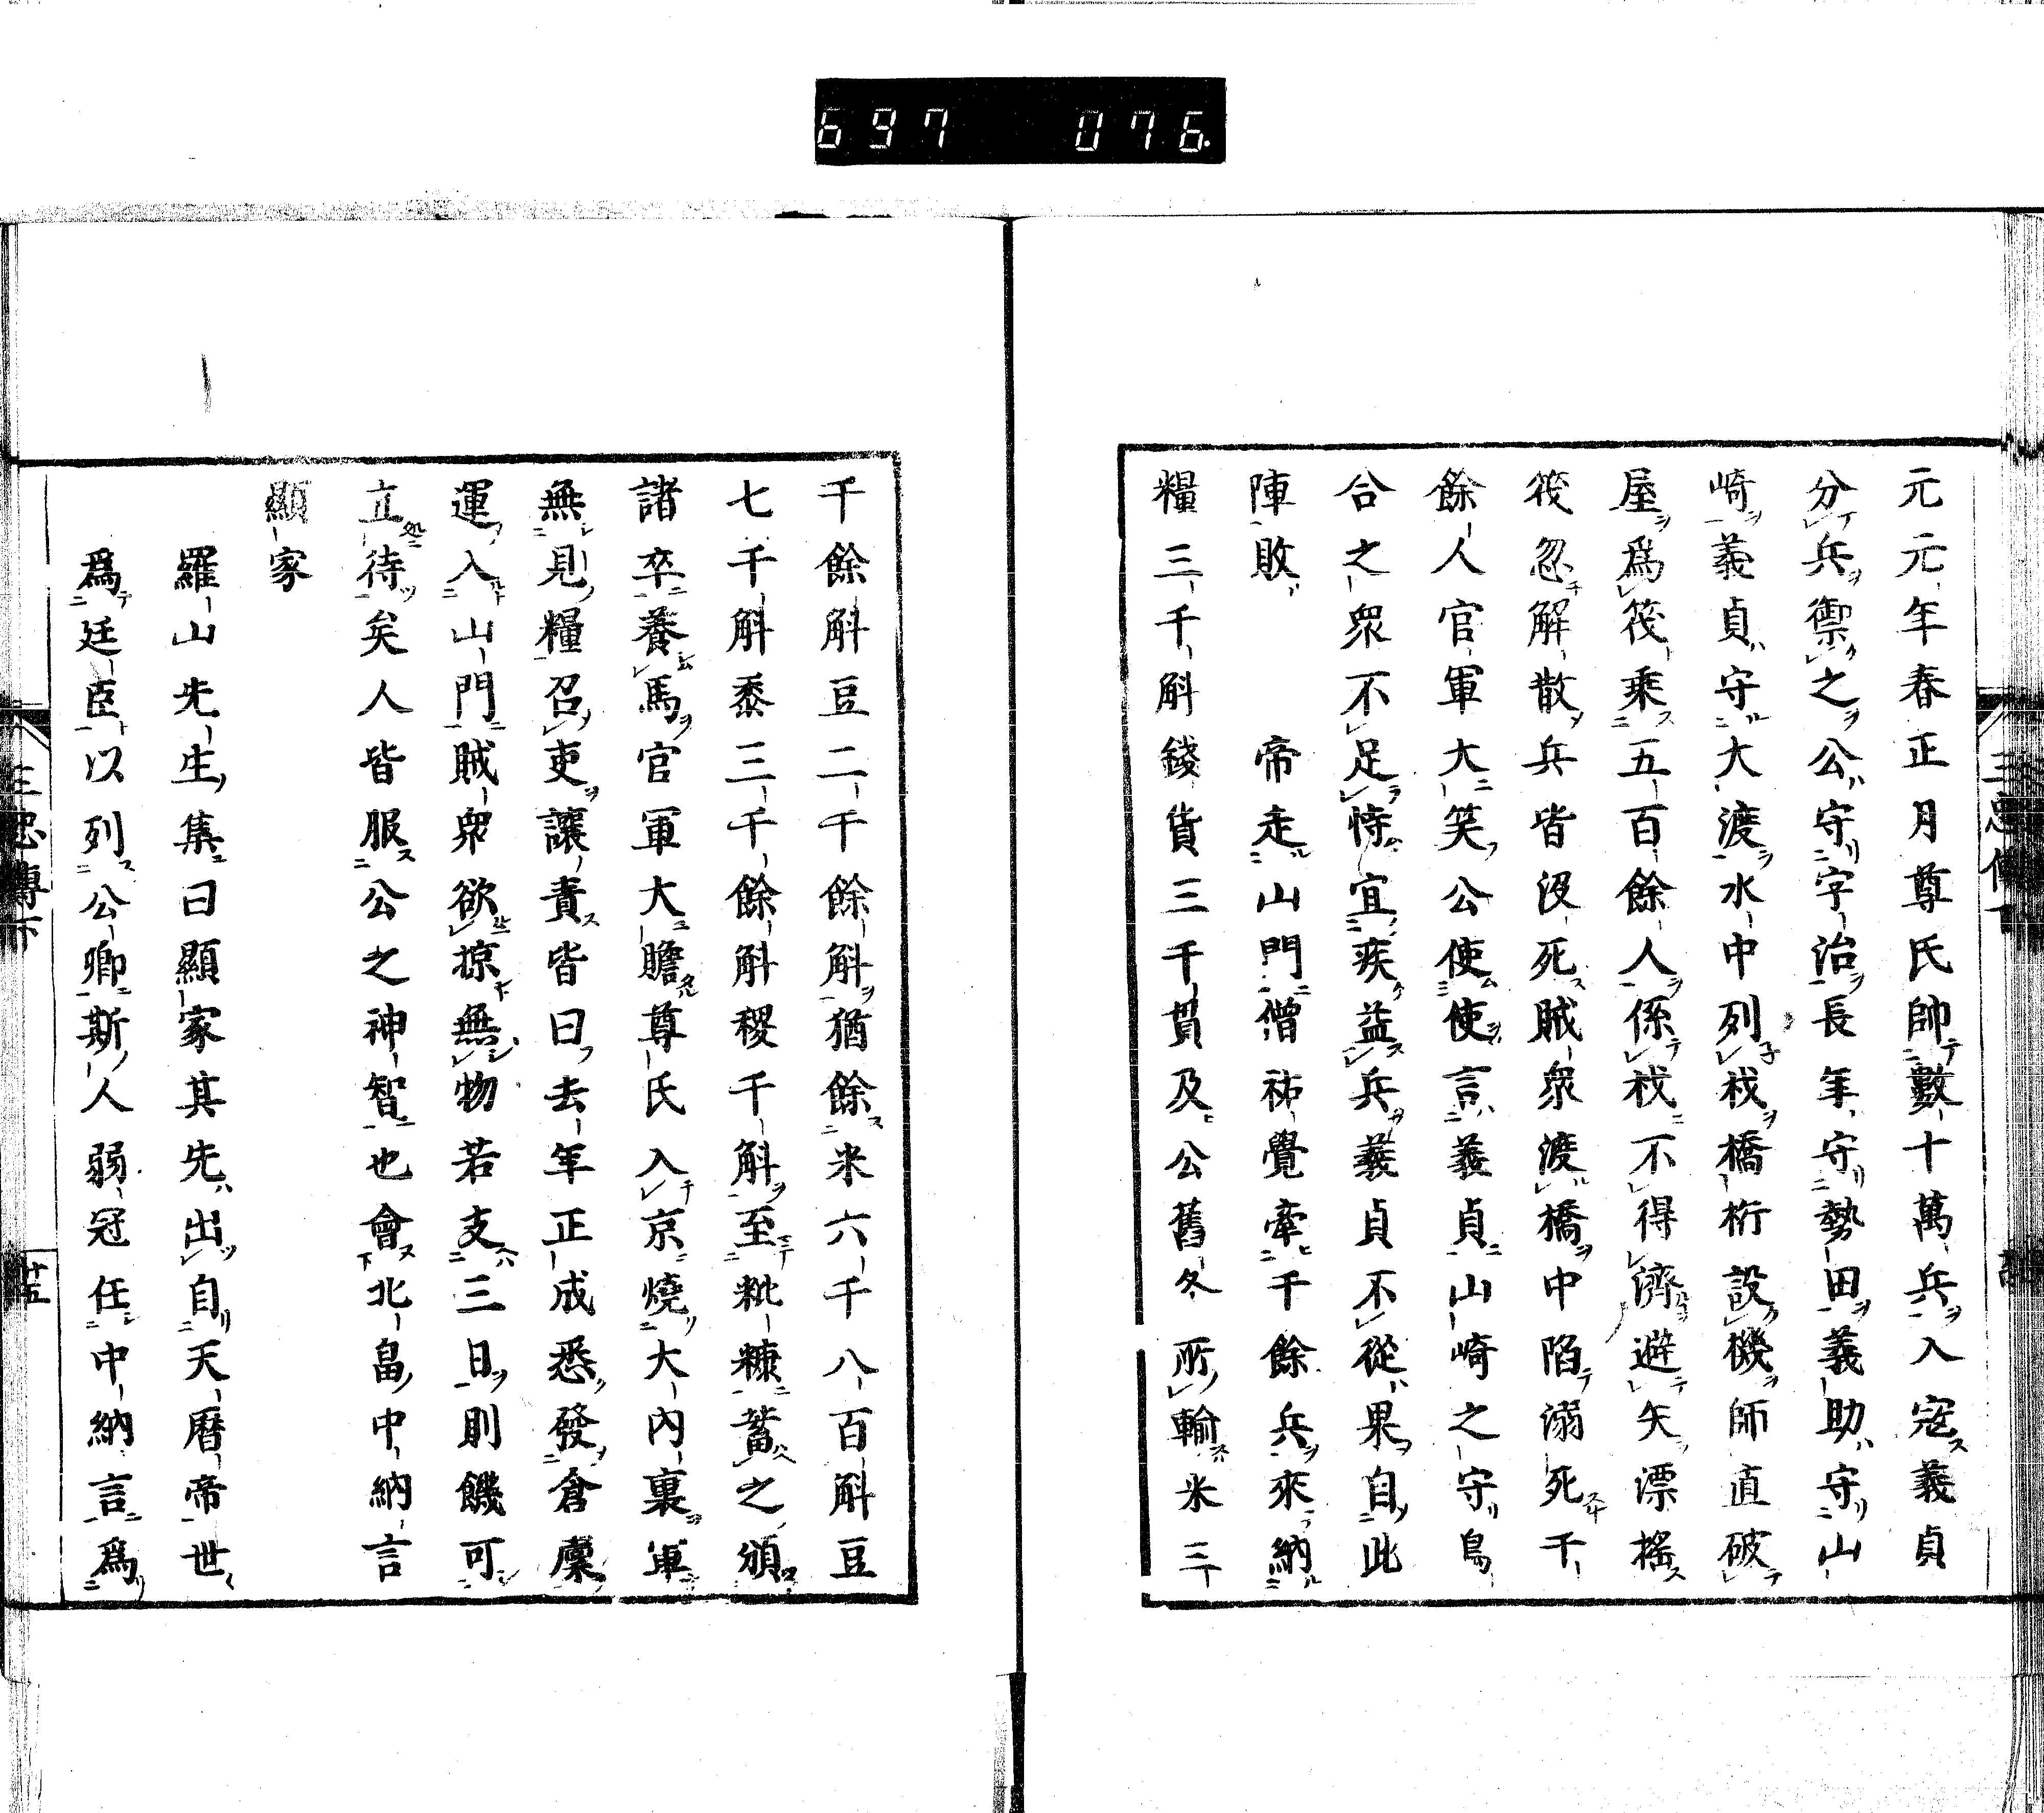 697 076.
元元年春正月尊氏帥數十萬兵入寇義貞
分兵禦之公守宇治長年守勢田義助守山
崎義貞守大渡水中列杙橋桁設機師直破
屋爲筏乘五百餘人係杙不得濟避矢漂搖
筏忽解散兵皆沒死賊衆渡橋中陷溺死千
餘人官軍大笑公使使言義貞山崎之守烏
合之衆不足恃宜疾益兵義貞不從果自此
陣敗　　帝走山門僧祐覺牽千餘兵來納
糧三千斛錢貨三千貫及公舊冬所輸米三
千餘斛豆二千餘斛猶餘米六千八百斛豆
七千斛黍三千餘斛稷千斛至粃糠蓄之頒
諸卒養馬官軍大贍尊氏入京燒大內裏軍
無見糧召吏讓責皆曰去年正成悉發倉廩
運入山門賊衆欲掠無物若支三日則饑可
立待矣人皆服公之神智也會北畠中納言
顯家
羅山先生集曰顯家其先出自天曆帝世
爲廷臣以列公卿斯人弱冠任中納言爲
三忠傳下
廿五